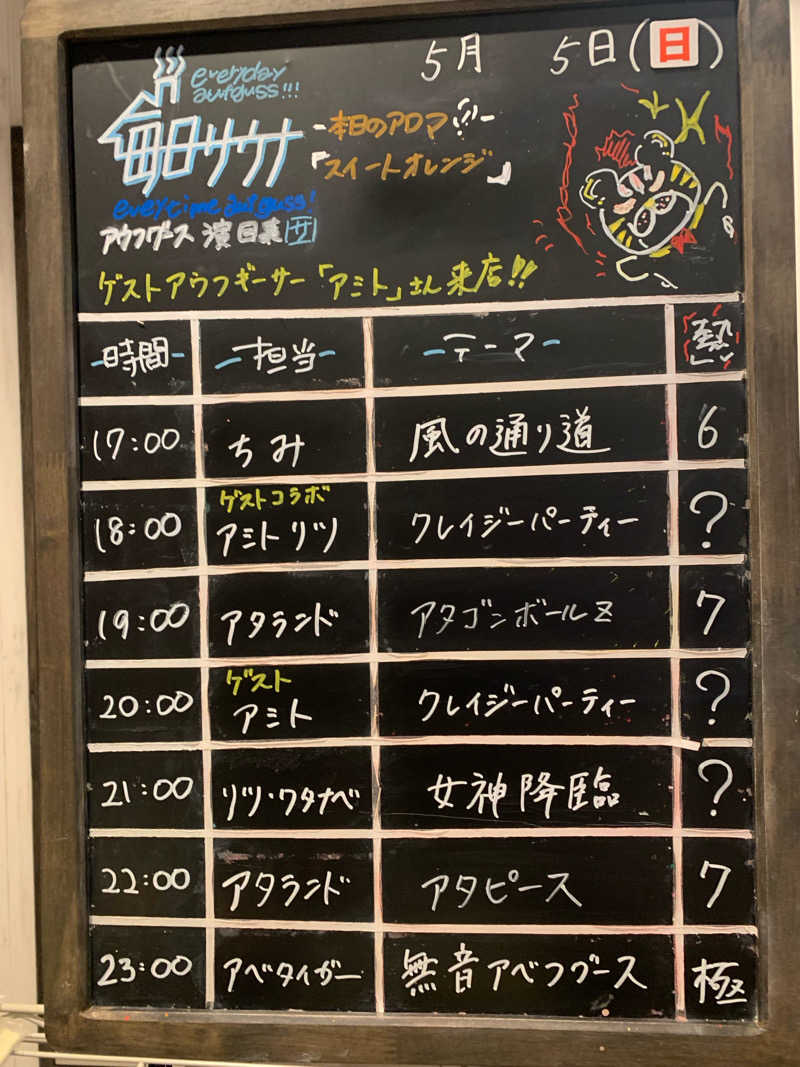 everyday
aufguss!!!
毎日サウナ
everytime aufguss!
アウフグース
5月 5日(日)
-本日のアロマ-
「スイートオレンジ」
ゲストアウフギーサー「アミト」さん来店!!
-時間- -担当- -テーマ- 熱
17:00 ちみ 風の通り道 6
ゲストコラボ
18:00 アミト リツ クレイジーパーティー ?
19:00 アタランド アタゴンボールZ 7
ゲスト
20:00 アミト クレイジーパーティー ?
21:00 リツ・ワタナベ 女神降臨 ?
22:00 アタランド アタピース 7
23:00 アベタイガー 無音アベフグース 極